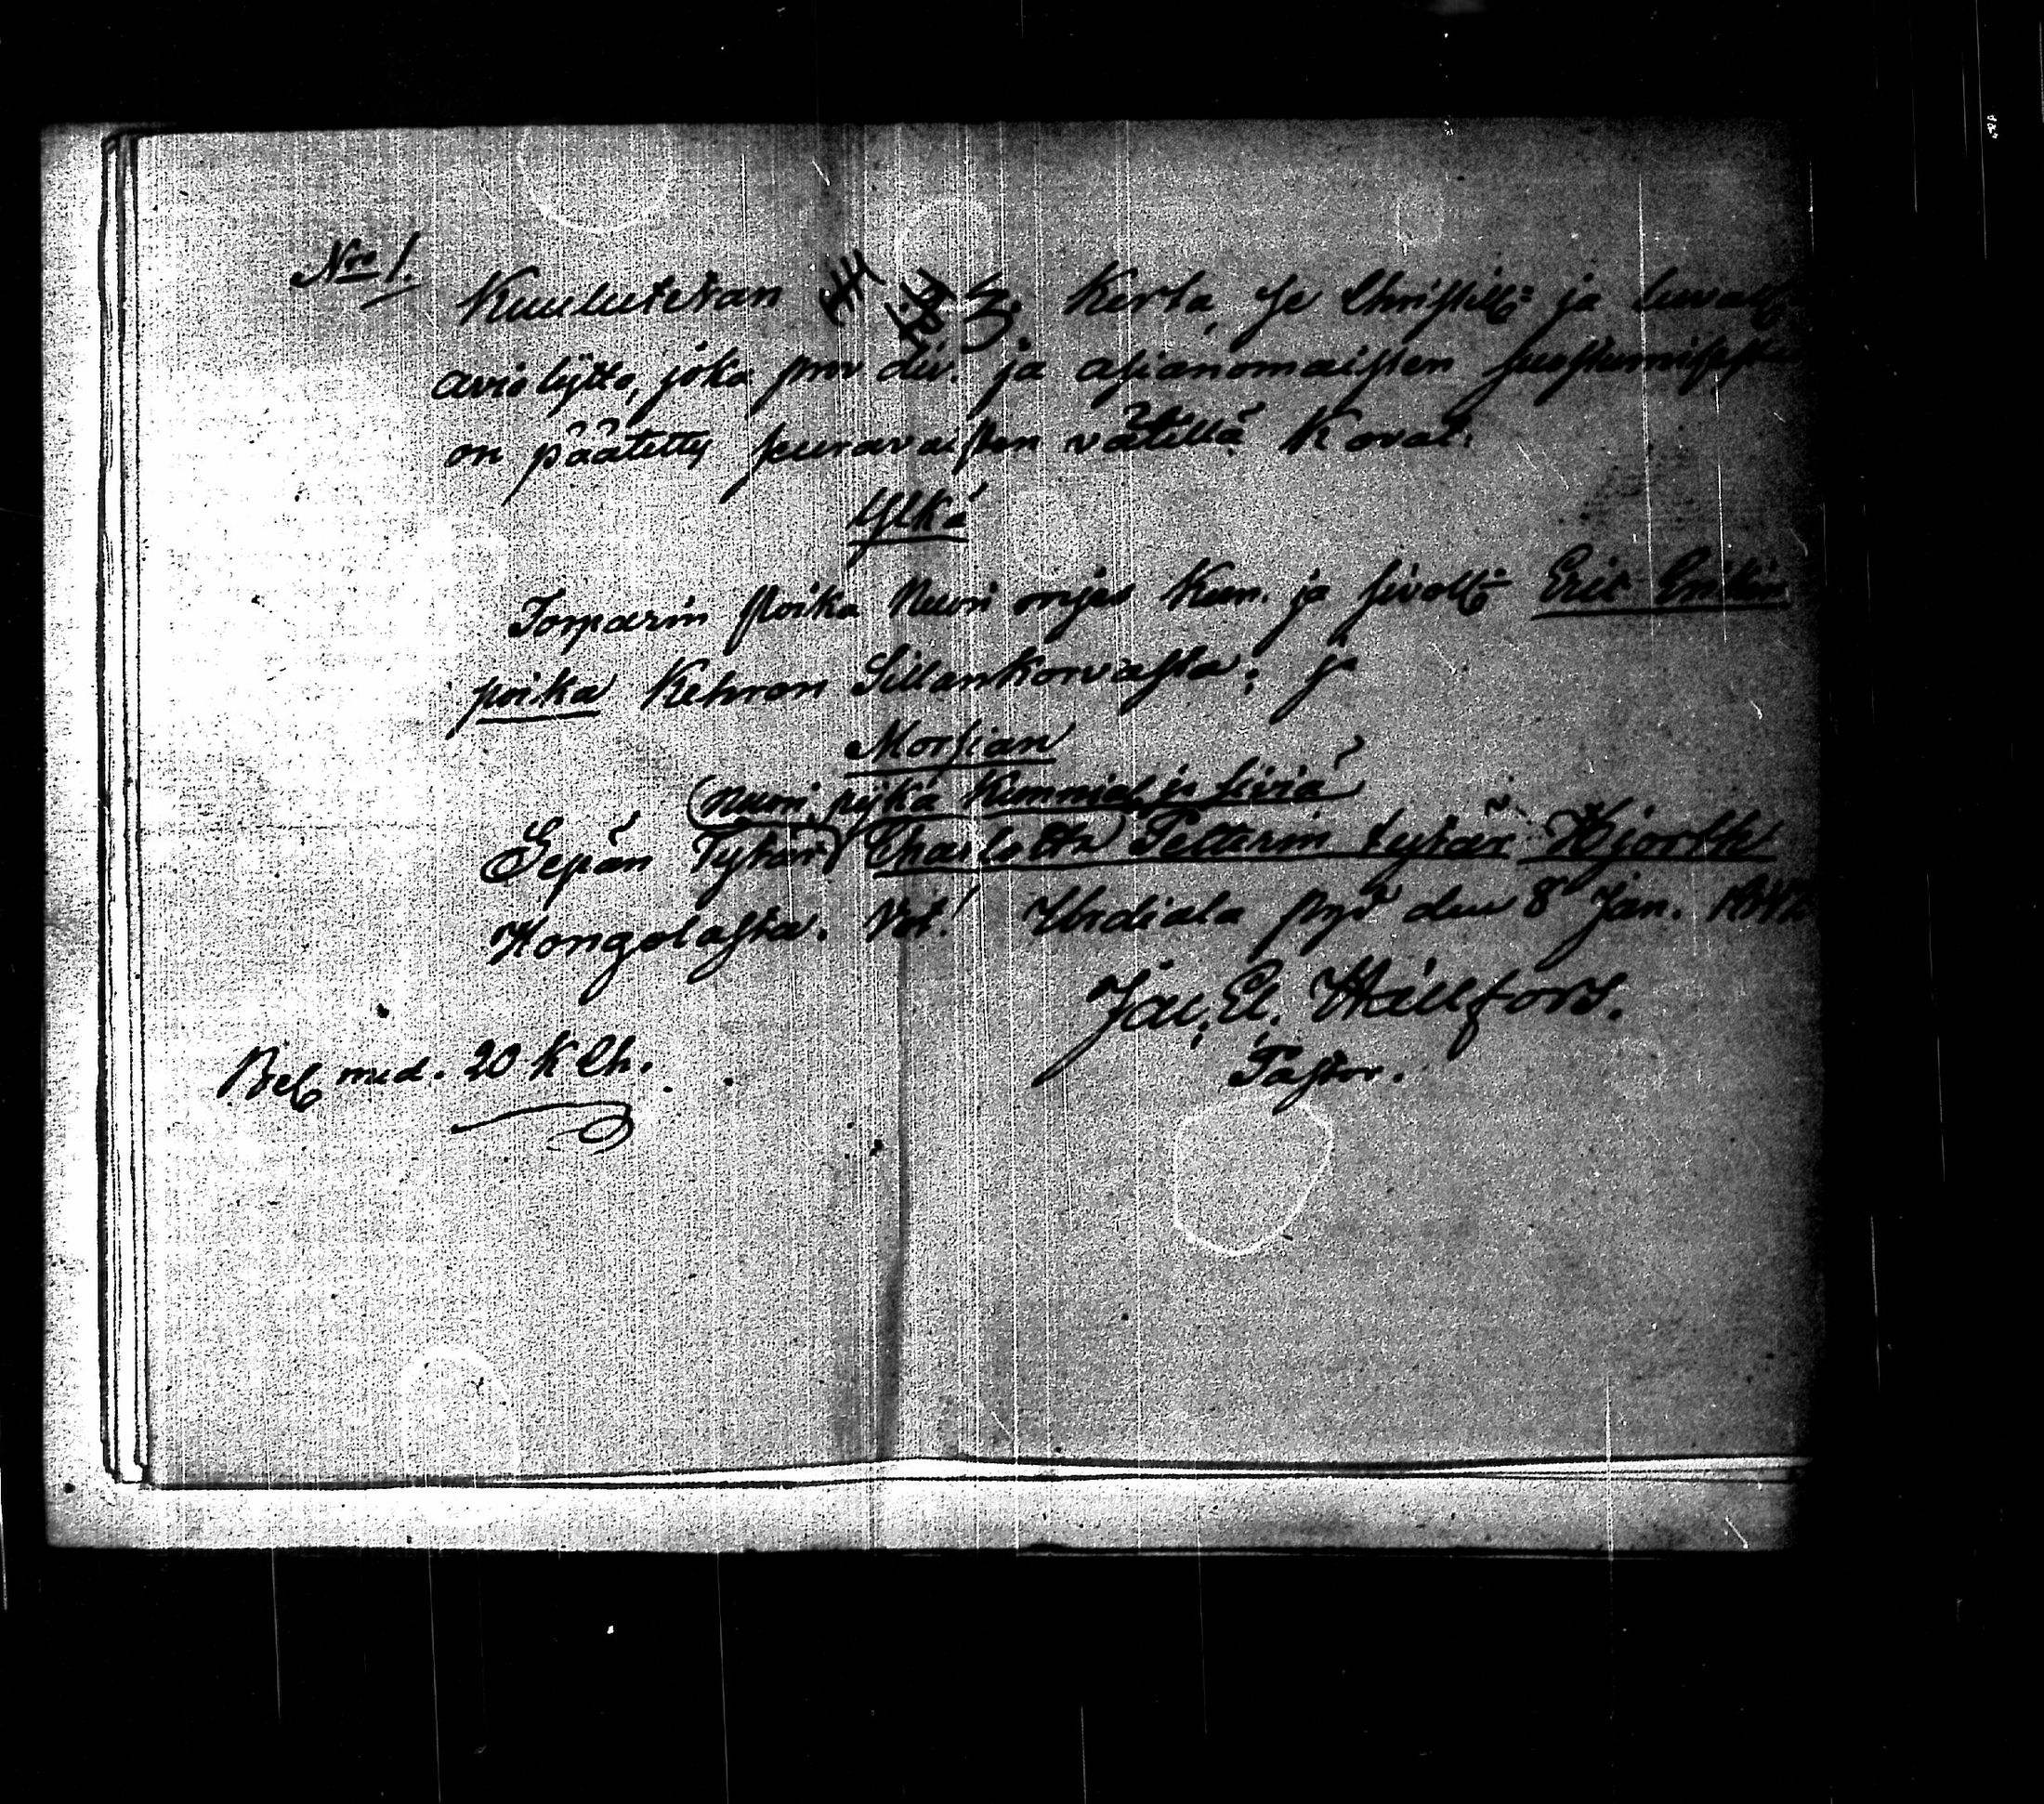 Nro 1.
Kuulutetan 3. Kerta, se Christill: ja luvall
avioliitto, joka prov div. ja asianomaisten suostumisesta
on päätetty seuravaisten välillä Koval.
Ylkä
Torparin poika Nuori mjes Kun. ja sivoll: Eric Erikin
poika Kehron Sillankorvasta; ja
Morsian
(Nuori pijka Kunnial. ja Siviä
Sepän Tytär) Charlotta Petterin tytär Hjorth
Hongolasta. Vet! Urdiala Prgd den 8 Jan.
Jac. El. Hällfors.
Pastor.
Bet. med. 20 K Ch.